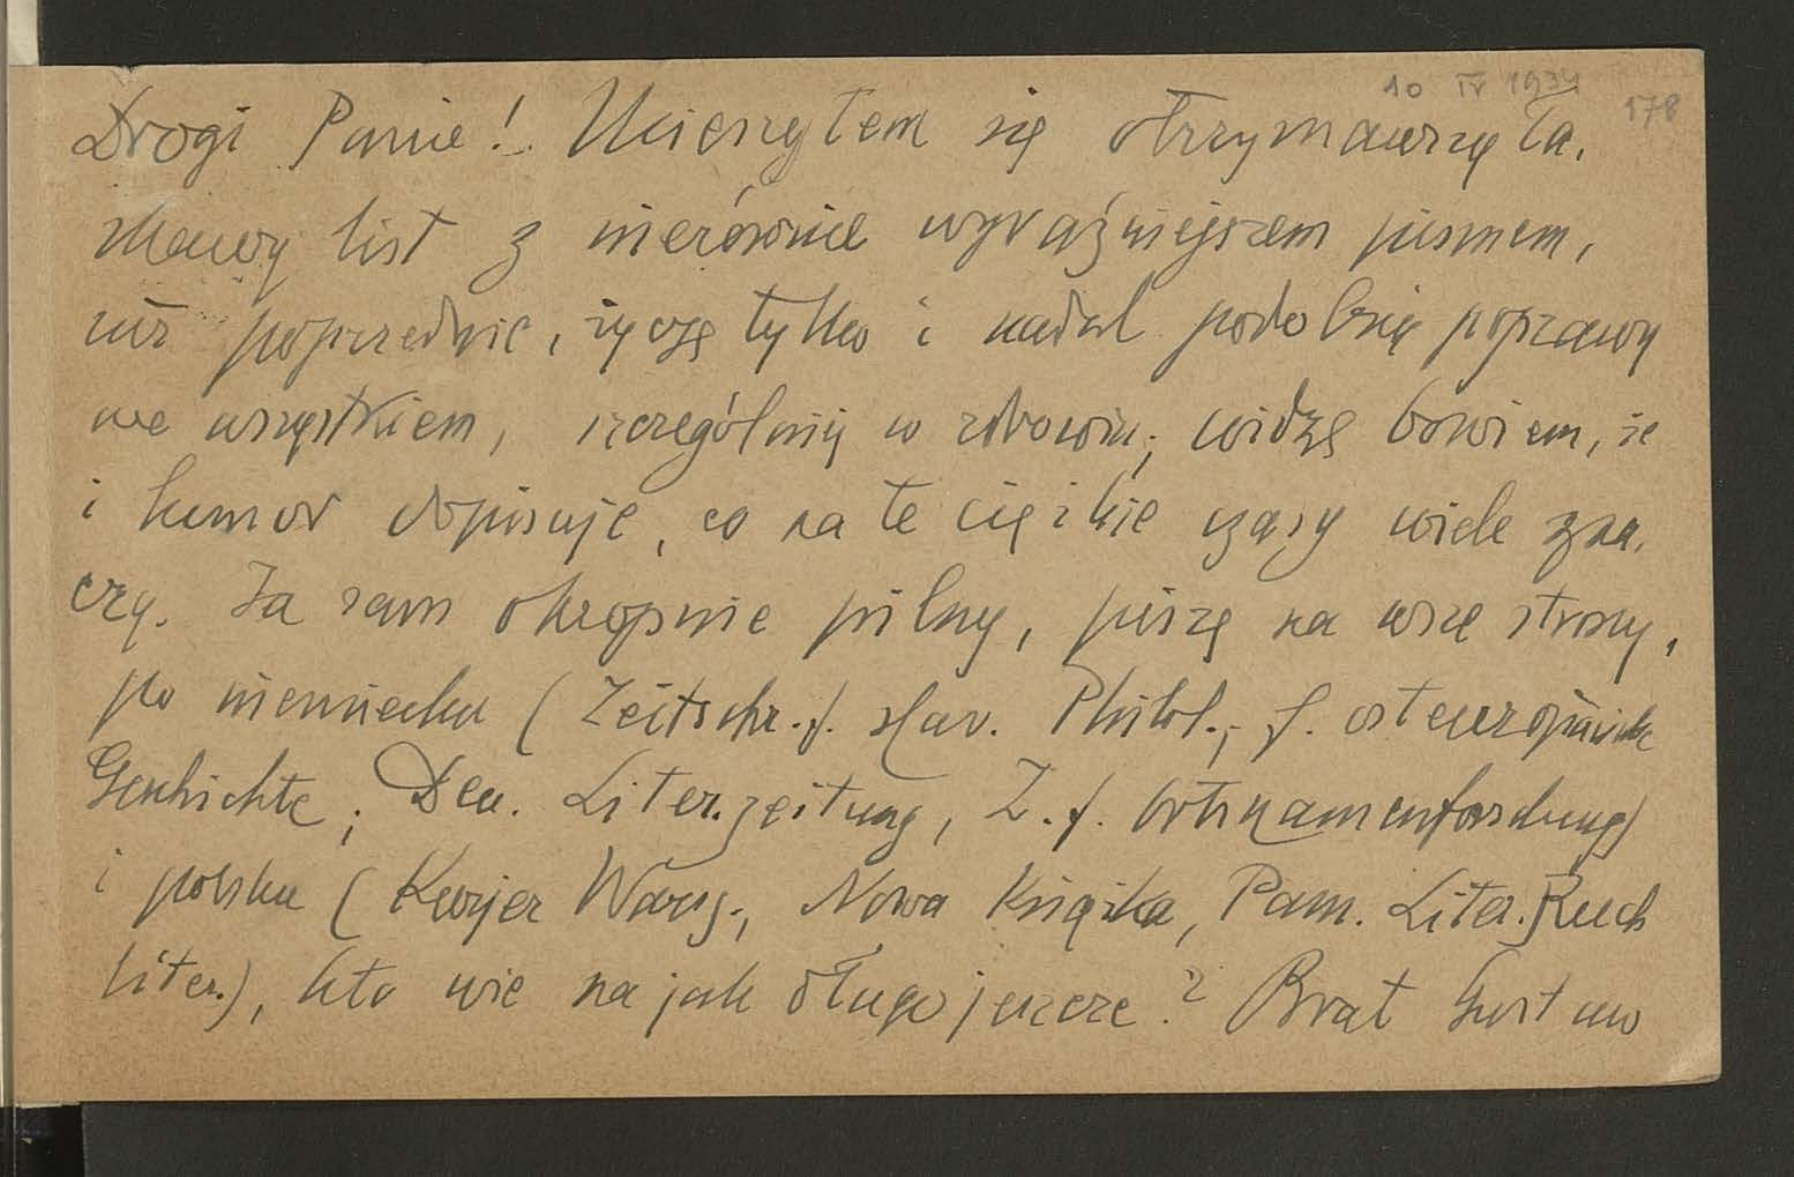 10 IV 1934
178
Drogi Panie! Ucieszyłem się otrzymawszy ła.
skawy list z nierównie wyraźniejszem pismem,
niż poprzednie, życzę tylko i nadal podobnej poprawy
we wszystkiem, szczególniej w zdrowiu; widzę bowiem, że
i humor dopisuje, co na te ciężkie czasy wiele zna.
czy. Ja sam okropnie pilny, piszę na wsze strony,
po niemiecku (Zeitschr. f. slav. Philol.; f. osteuropäische
Geschichte; Deu. Liter.zeitung, Z. f. Ortsnamenforschung)
i polsku (Kurjer Warsz., Nowa Książka, Pam. Liter. Ruch
liter.), kto wie na jak długo jeszcze? Brat Gustaw